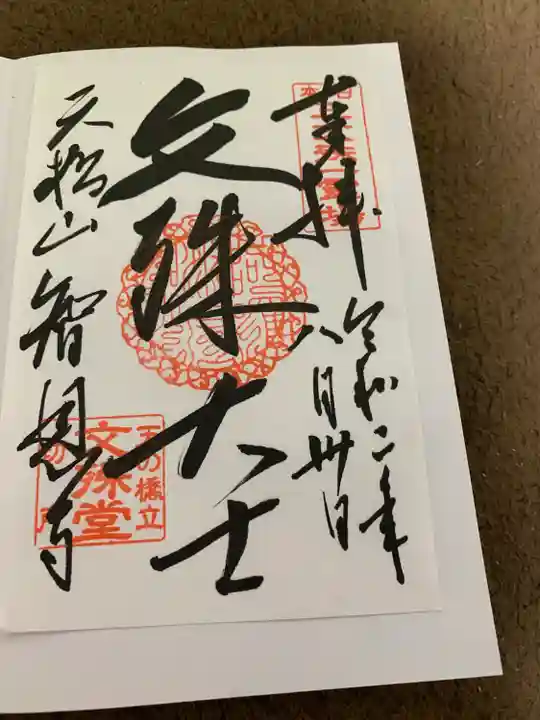 奉拝
令和二年
八月卅日
文殊大士
天橋山智恩寺
天の橋立
文殊堂